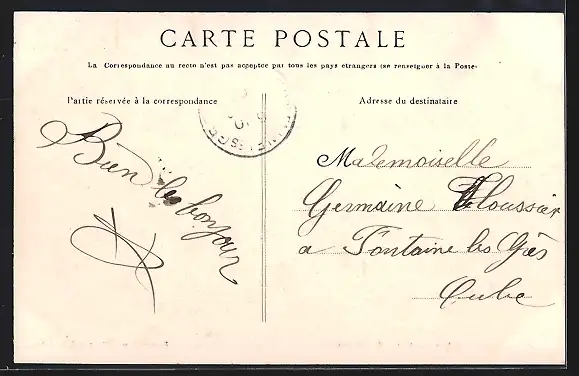 CARTE POSTALE
La Correspondance au recto n'est pas acceptée par tous les pays étrangers (se renseigner à la Poste)
Partie réservée à la correspondance
Adresse du destinataire
Bien le bonjour
Mademoiselle
Germaine
a Fontaine les Grès
Aube